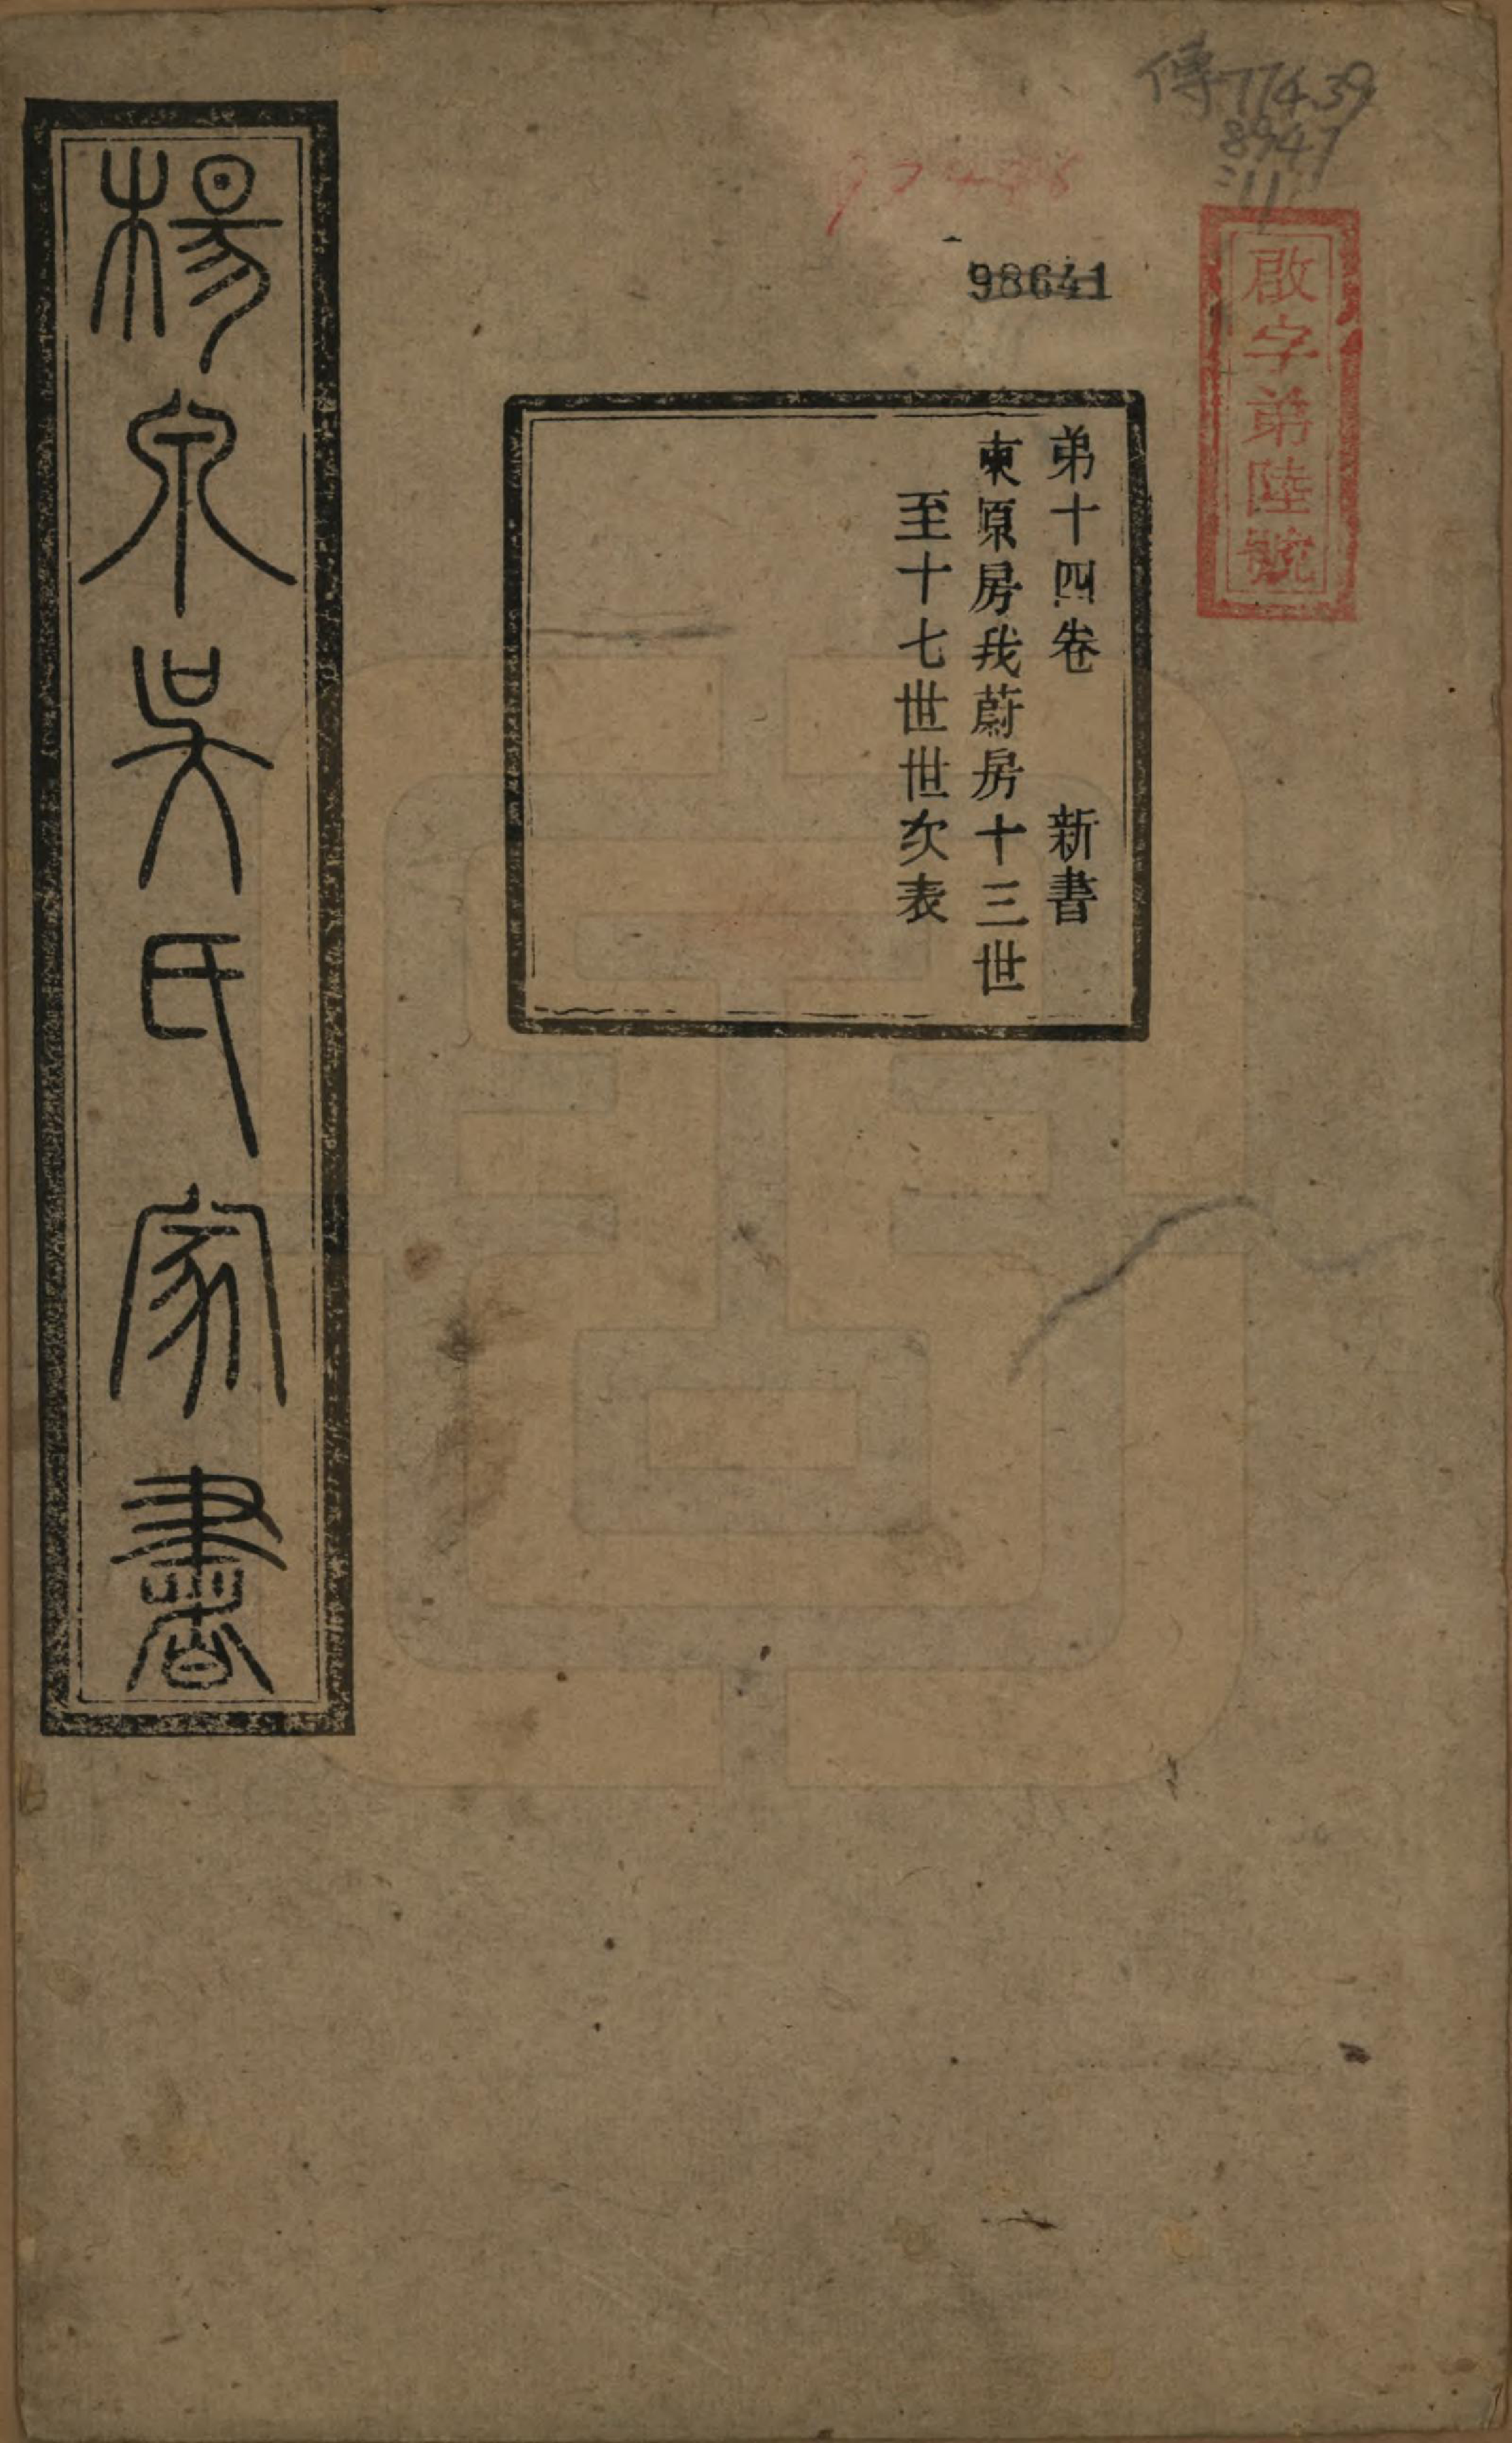 傳774.39
8947
:11
98641
啟字第陸號
弟十四卷　新書
東原房我蔚房十三世
至十七世世次表
楊泉吳氏家書